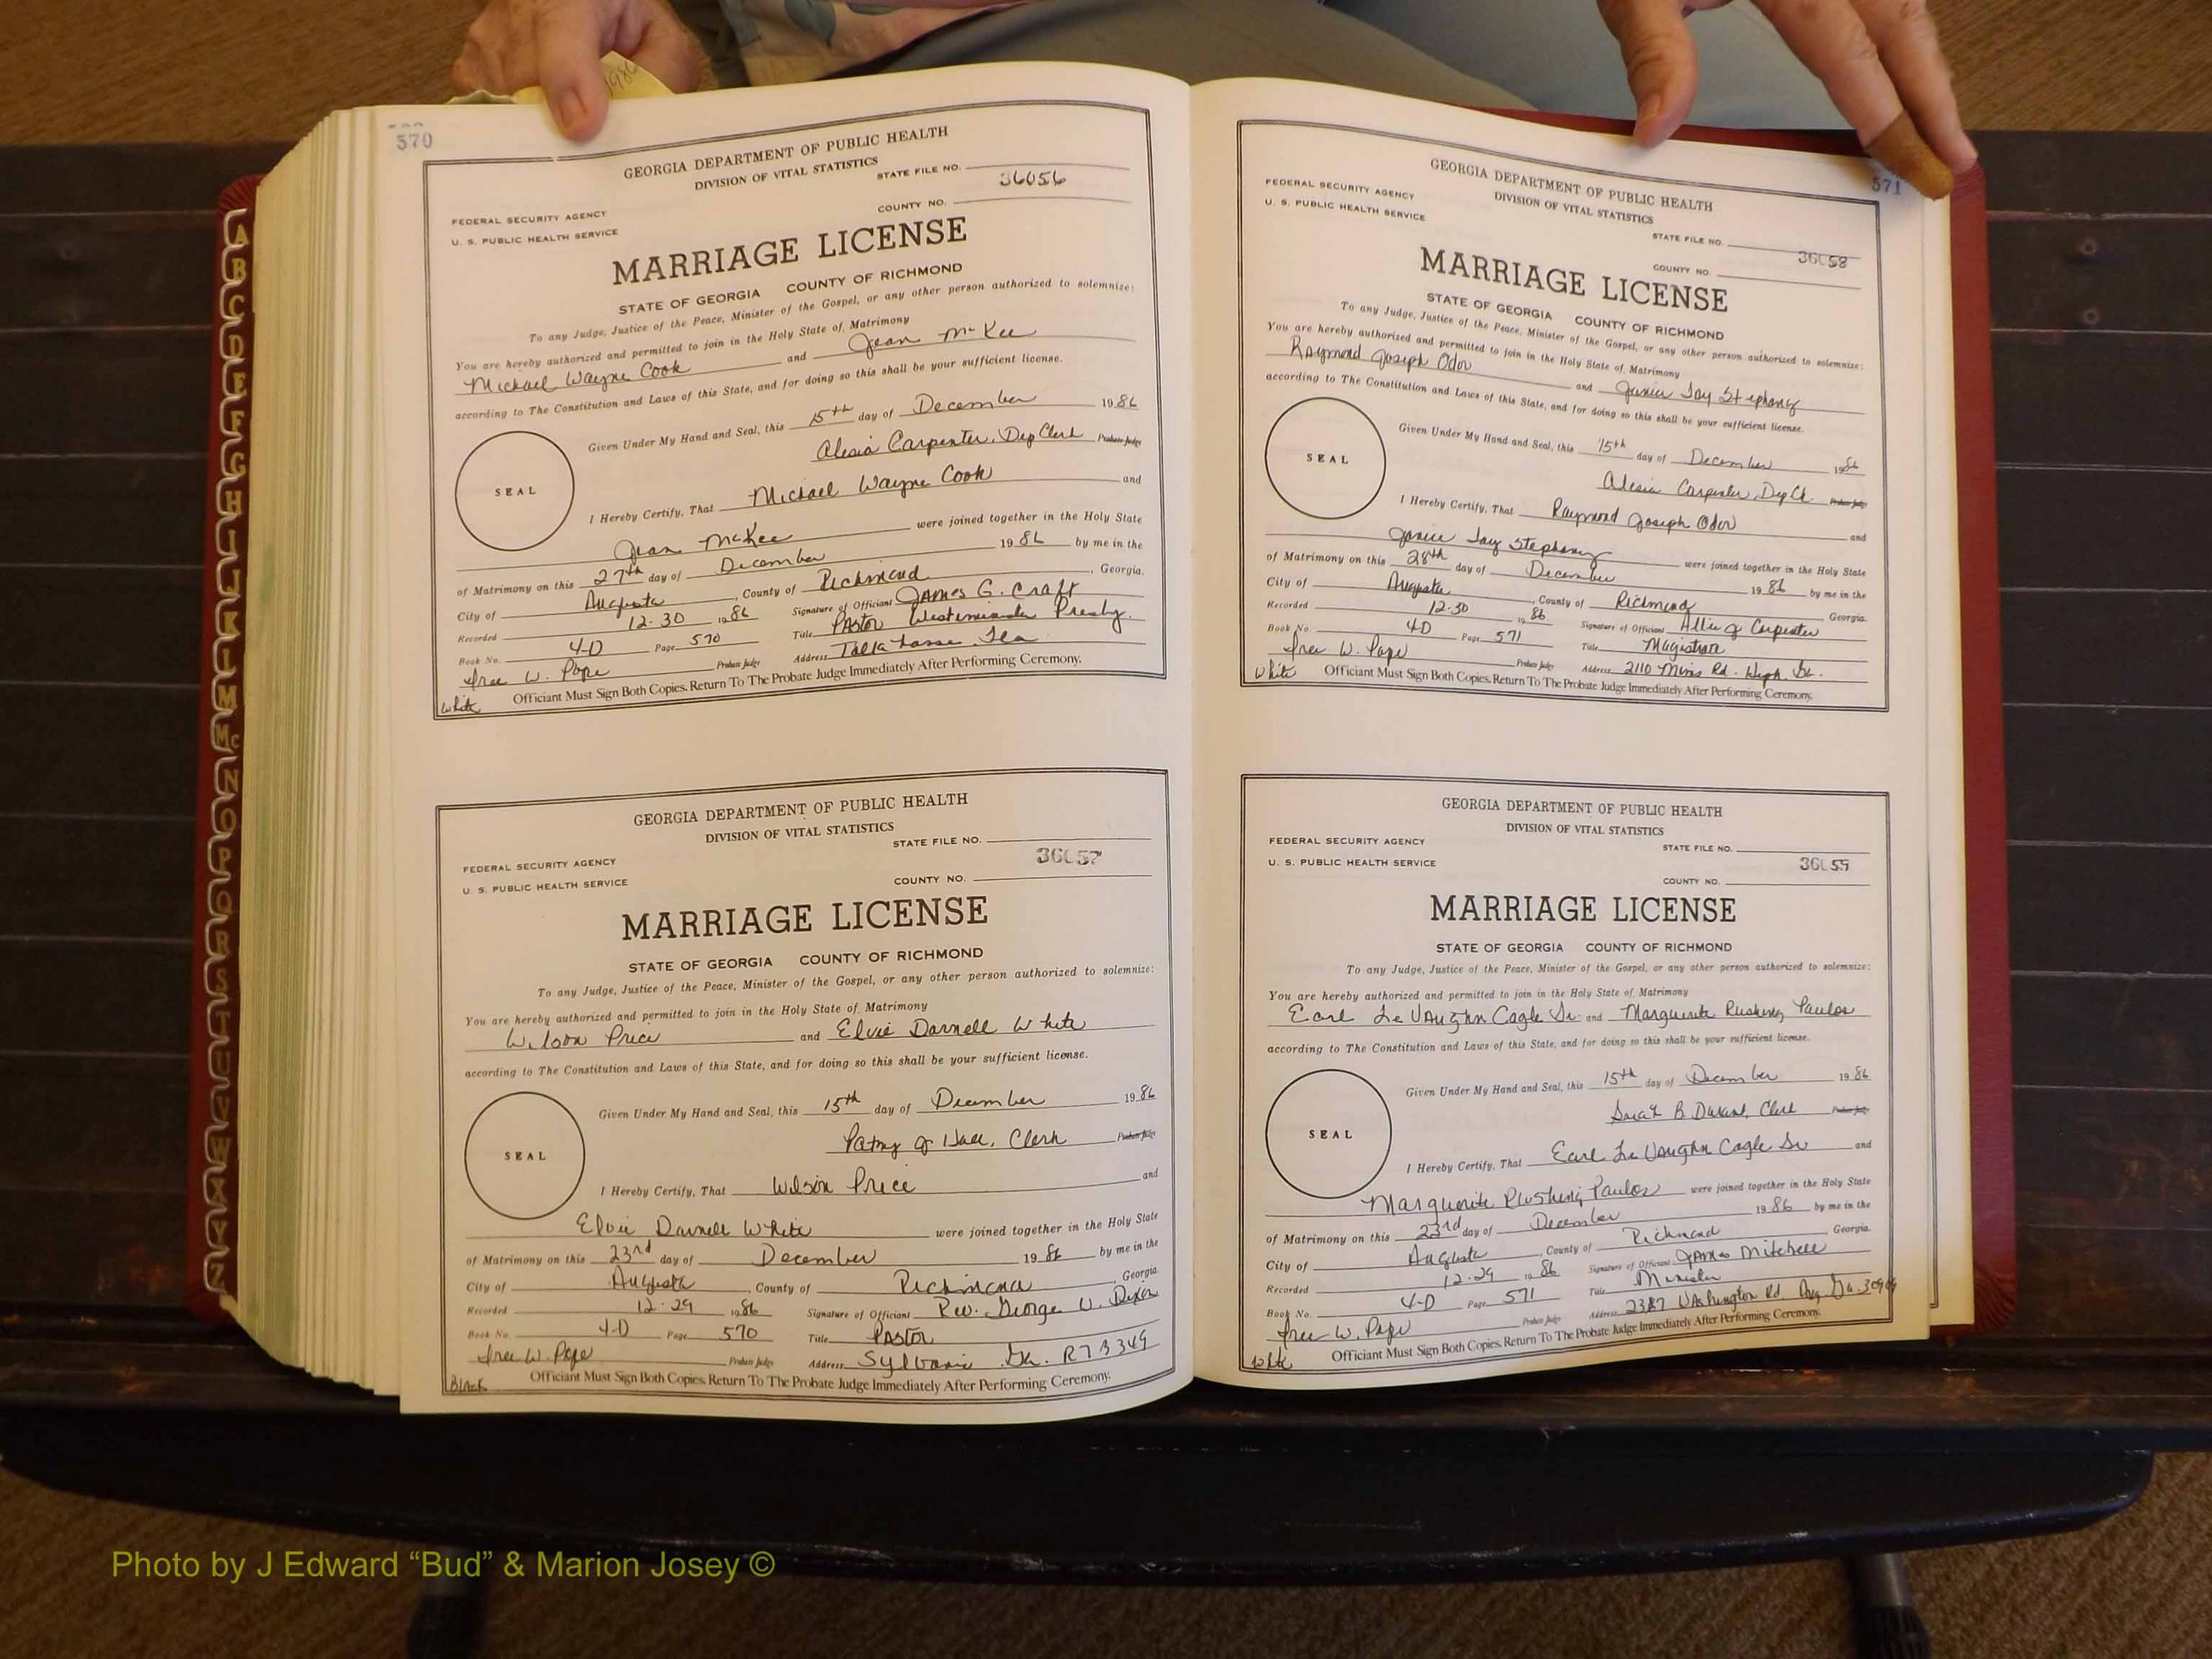 1986
570
GEORGIA DEPARTMENT OF PUBLIC HEALTH
DIVISION OF VITAL STATISTICS
STATE FILE NO.
36056
FEDERAL SECURITY AGENCY
COUNTY NO.
U. S. PUBLIC HEALTH SERVICE
MARRIAGE LICENSE
STATE OF GEORGIA COUNTY OF RICHMOND
To any Judge, Justice of the Peace, Minister of the Gospel, or any other person authorized to solemnize:
You are hereby authorized and permitted to join in the Holy State of Matrimony
Michael Wayne Cook and Jean McKee
according to The Constitution and Laws of this State, and for doing so this shall be your sufficient license.
Given Under My Hand and Seal, this 15th day of December 1986
Alesia Carpenter, Dep Clerk Probate Judge
SEAL
I Hereby Certify, That Michael Wayne Cook and
Jean McKee were joined together in the Holy State
of Matrimony on this 27th day of December 1986 by me in the
City of Augusta, County of Richmond, Georgia.
Recorded 12-30 1986 Signature of Officiant James G. Craft
Book No. 4-D Page 570 Title Pastor Westminster Presby.
W. Pope Probate Judge Address
White Officiant Must Sign Both Copies. Return To The Probate Judge Immediately After Performing Ceremony.
GEORGIA DEPARTMENT OF PUBLIC HEALTH
DIVISION OF VITAL STATISTICS
STATE FILE NO.
36057
FEDERAL SECURITY AGENCY
COUNTY NO.
U. S. PUBLIC HEALTH SERVICE
MARRIAGE LICENSE
STATE OF GEORGIA COUNTY OF RICHMOND
To any Judge, Justice of the Peace, Minister of the Gospel, or any other person authorized to solemnize:
You are hereby authorized and permitted to join in the Holy State of Matrimony
Wilson Price and Elvie Darnell White
according to The Constitution and Laws of this State, and for doing so this shall be your sufficient license.
Given Under My Hand and Seal, this 15th day of December 1986
J Hall, Clerk Probate Judge
SEAL
I Hereby Certify, That Wilson Price and
Elvie Darnell White were joined together in the Holy State
of Matrimony on this 23rd day of December 1986 by me in the
City of Augusta, County of Richmond, Georgia.
Recorded 12-29 1986 Signature of Officiant Rev. George W. Dixon
Book No. 4-D Page 570 Title Pastor
W. Pope Probate Judge Address Sylvania Ga.
Black Officiant Must Sign Both Copies. Return To The Probate Judge Immediately After Performing Ceremony.
571
GEORGIA DEPARTMENT OF PUBLIC HEALTH
DIVISION OF VITAL STATISTICS
FEDERAL SECURITY AGENCY
U. S. PUBLIC HEALTH SERVICE
STATE FILE NO.
36058
COUNTY NO.
MARRIAGE LICENSE
STATE OF GEORGIA COUNTY OF RICHMOND
To any Judge, Justice of the Peace, Minister of the Gospel, or any other person authorized to solemnize:
You are hereby authorized and permitted to join in the Holy State of Matrimony
Raymond Joseph Odor and Janice Jay Stephany
according to The Constitution and Laws of this State, and for doing so this shall be your sufficient license.
Given Under My Hand and Seal, this 15th day of December 1986
Alesia Carpenter, Dep Ck. Probate Judge
SEAL
I Hereby Certify, That Raymond Joseph Odor and
Janice Jay Stephany were joined together in the Holy State
of Matrimony on this 28th day of December 1986 by me in the
City of Augusta, County of Richmond, Georgia.
Recorded 12-30 1986 Signature of Officiant Allie J Carpenter
Book No. 4D Page 571 Title Magistrate
W. Pope Probate Judge Address 2110 Mims Rd. Heph. Ga.
White Officiant Must Sign Both Copies. Return To The Probate Judge Immediately After Performing Ceremony.
GEORGIA DEPARTMENT OF PUBLIC HEALTH
DIVISION OF VITAL STATISTICS
FEDERAL SECURITY AGENCY
STATE FILE NO.
U. S. PUBLIC HEALTH SERVICE
36059
COUNTY NO.
MARRIAGE LICENSE
STATE OF GEORGIA COUNTY OF RICHMOND
To any Judge, Justice of the Peace, Minister of the Gospel, or any other person authorized to solemnize:
You are hereby authorized and permitted to join in the Holy State of Matrimony
Earl Le Vaughn Cagle Sr and Marguerite Rushing Paulos
according to The Constitution and Laws of this State, and for doing so this shall be your sufficient license.
Given Under My Hand and Seal, this 15th day of December 1986
Sarah B. Durant, Clerk Probate Judge
SEAL
I Hereby Certify, That Earl Le Vaughn Cagle Sr and
Marguerite Rushing Paulos were joined together in the Holy State
of Matrimony on this 23rd day of December 1986 by me in the
City of Augusta, County of Richmond, Georgia.
Recorded 12-29 1986 Signature of Officiant James Mitchell
Book No. 4-D Page 571 Title Minister
W. Pope Probate Judge Address 2387 Washington Rd Aug. Ga. 30904
White Officiant Must Sign Both Copies. Return To The Probate Judge Immediately After Performing Ceremony.
A
B
C
D
E
F
G
H
I
J
K
L
M
Mc
N
O
P
Q
R
S
T
U
V
W
X
Y
Z
Photo by J Edward “Bud” & Marion Josey ©